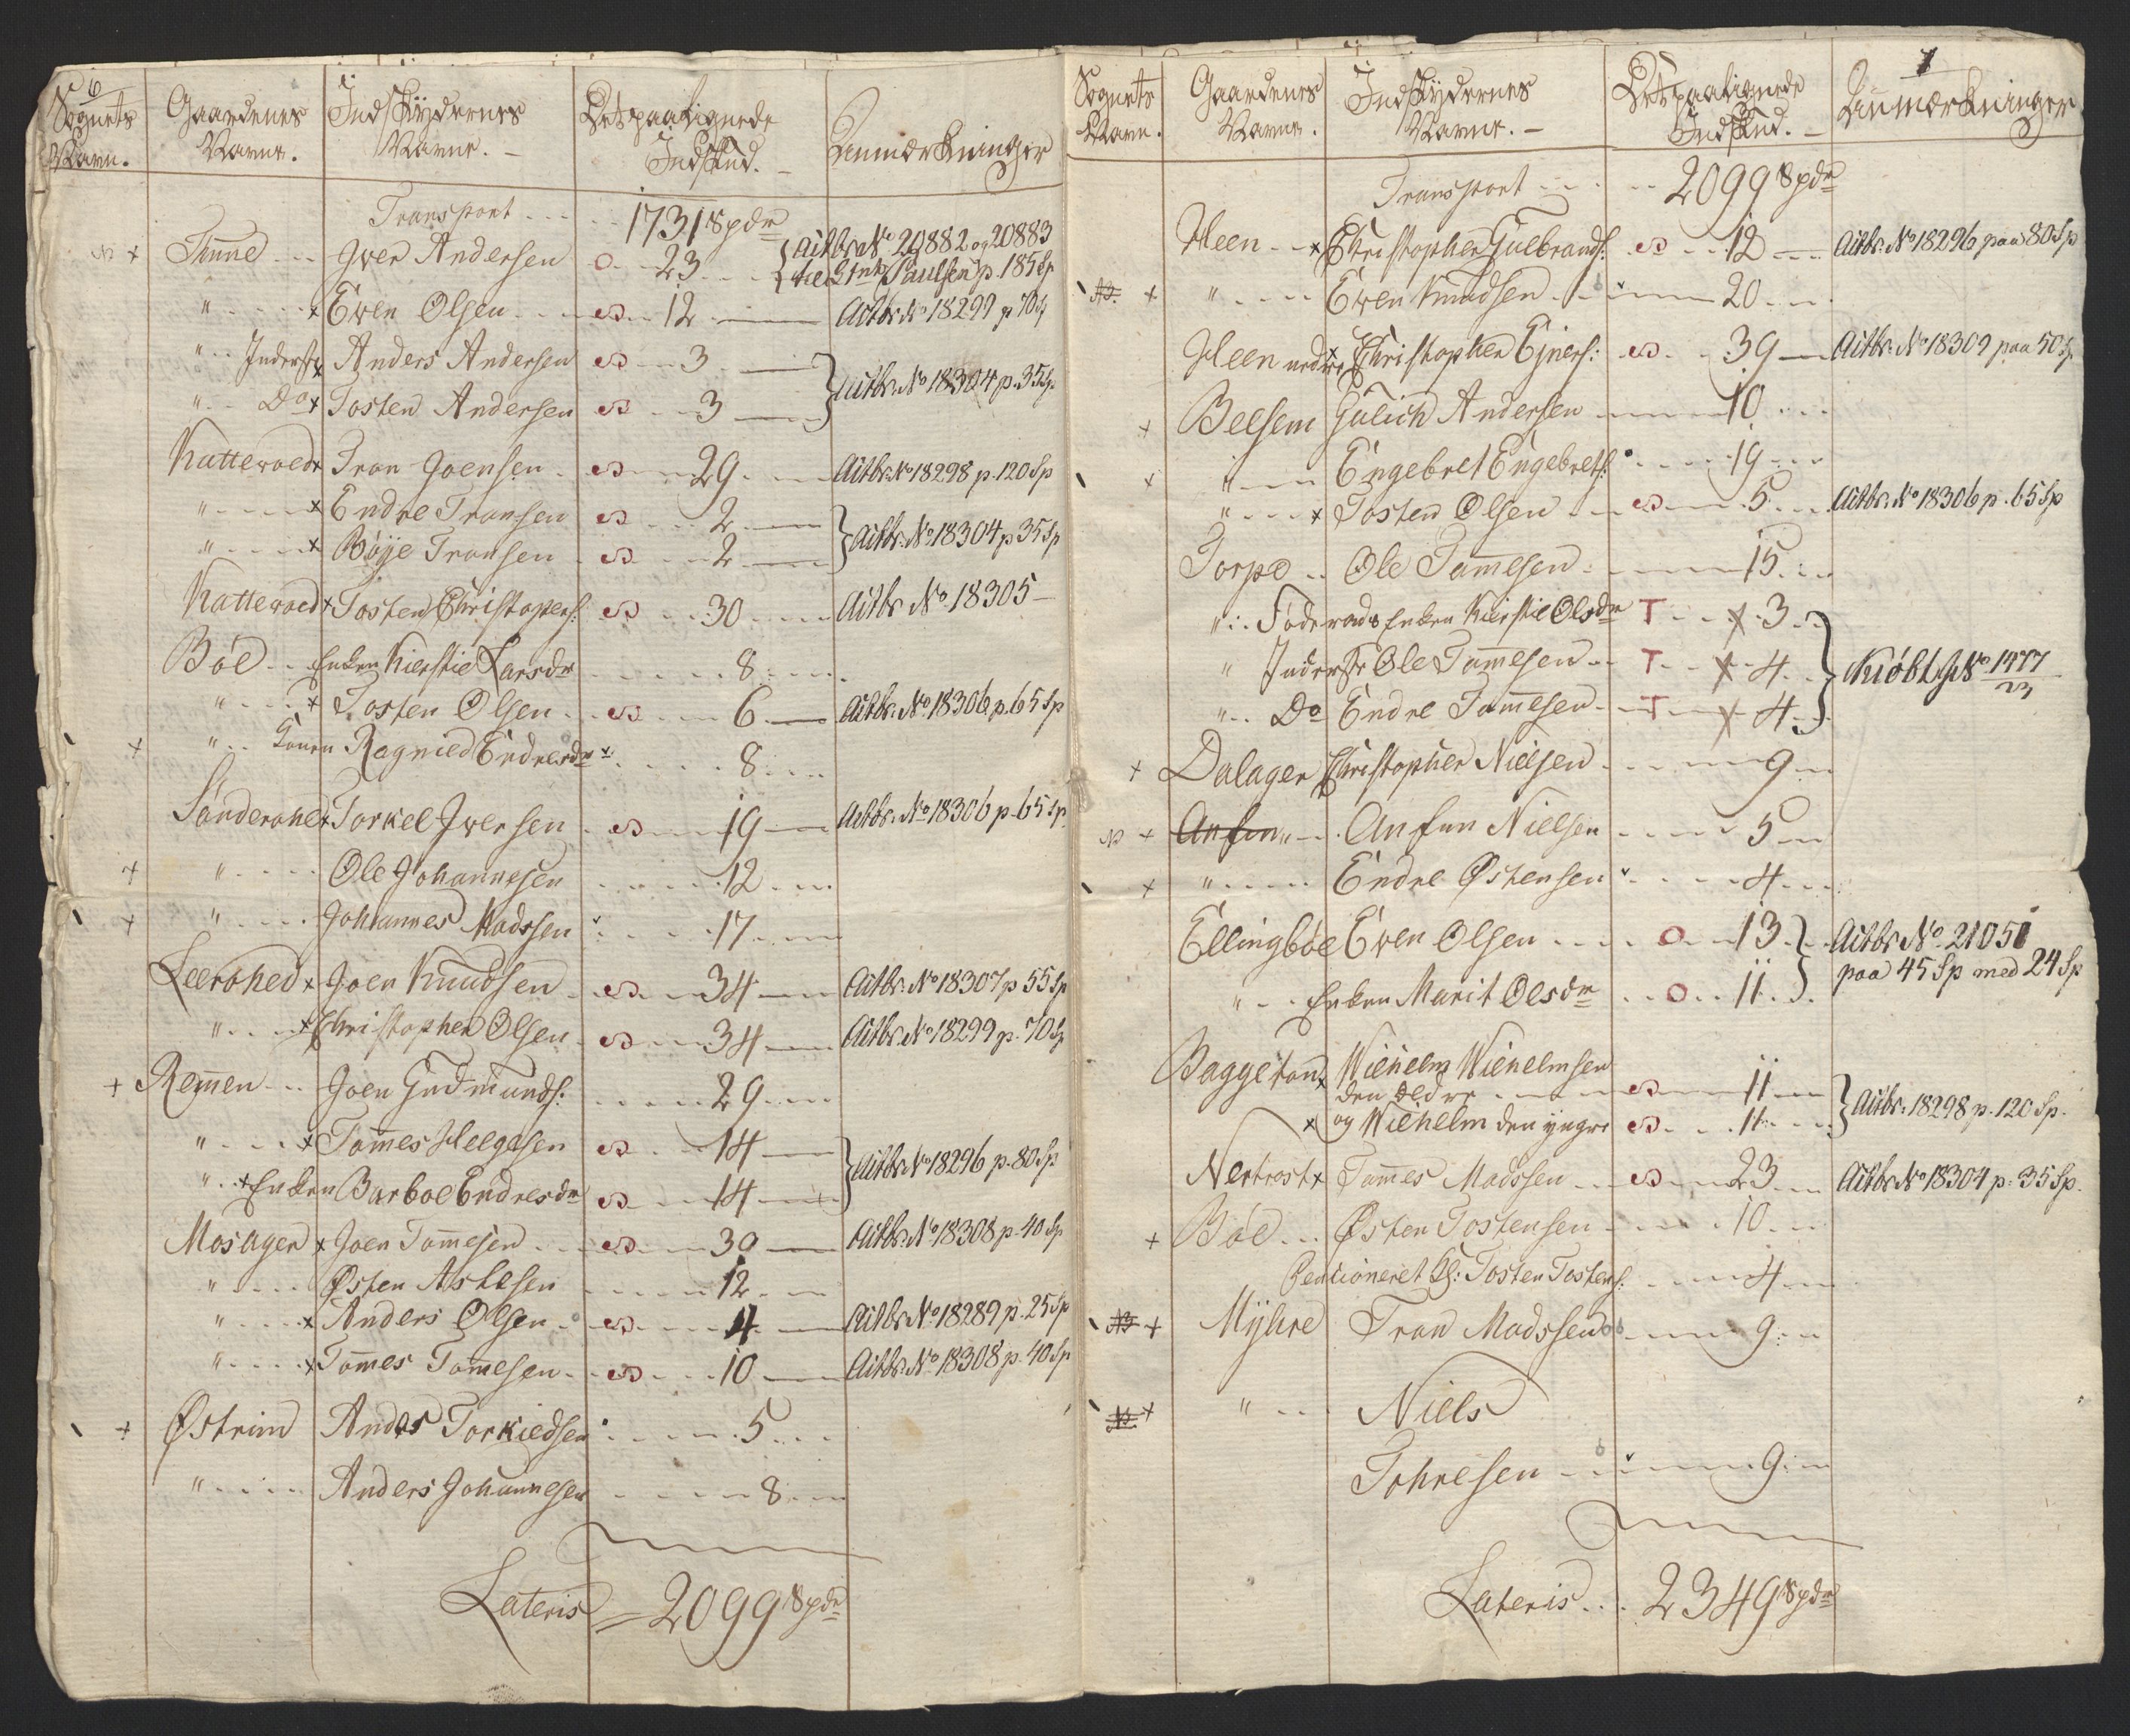 6
Sognets Navn. Gaardenes Navne. Indskydernes Navne. – Det paalignede Indskud. – Anmærkninger
Transport - - - 1731 Spdr
NB + Tunne - - Iver Andersen O - 23 - - { Actbr. No 20882 og 20883
Paulsen p. 185 Sp
" - - - - x Even Olsen - - - 12 — Actbr. No 18299 p 70 Sp
" - - Inderst x Anders Andersen - 3 — } Actbr. No 18304 p. 35 Sp
" - - Do x Tosten Andersen - 3 —
Kattevold x Tron Joensen - - 29 - - Actbr. No 18298 p. 120 Sp
" - - - - x Endre Tronsen - - 2 — } Actbr. No 18304 p 35 Sp
" - - - - x Böye Tronsen - - 2 —
Kattevold x Tosten Christophers: - - 30 - - Actbr. No 18305 –
Böe - - Enken Kierstie Larsdr - - - 8 - - -
" - - - x Tosten Olsen - - 6 — Actbr. No 18306 p. 65 Sp
+ " - - Konen Ragnild Endresdr - - - 8 - - -
Sönderohe x Torkel Iversen - - 19 — Actbr. No 18306 p. 65 Sp
+ " - - - - Ole Johannesen - - - 12 - -
+ " - - - - Johannes Madssen - - - 17 - -
Leerohed x Joen Knudsen - - 34 — Actbr. No 18307 p 55 Sp
" - - - - x Christopher Olsen - - 34 — Actbr. No 18299 p. 70 Sp
+ Remmen - - Joen Gudmunds: - - - 29 - -
" - - - - x Tommes Helgesen - - 14 — } Actbr. No 18296 p. 80 Sp
" - - x Enken Barboe Endresdr - - 14 —
Mosager x Joen Tommesen - - 30 — Actbr. No 18308 p. 40 Sp
" - - - - Østen Aslesen - - - 12 - -
" - - - - x Anders Olsen - - 4 — Actbr. No 18289 p. 25 Sp
" - - - - x Tommes Tommesen - - 10 — Actbr. No 18308 p. 40 Sp
+ Østrim Anders Torkiedsen - - - 5 - - -
" - - - - Anders Johannesen - - - 8 - -
Lateris = 2099 Spdr
7
Sognets Navn. Gaardenes Navne. Indskydernes Navne. – Det paalignede Indskud. – Anmærkninger
Transport - - - 2099 Spdr
Heen - - x Christopher Gulbrands: - - 12 - - Actbr. No 18296 paa 80 Sp
NB. + " - - - - Even Knudsen - - - 20 - -
Heen nedre x Christopher Ejners: - - 39 — Actbr. No 18309 paa 50 Sp
+ Belsem Gulich Andersen - - - 10 - - -
+ " - - - Engebret Engebrets: - - - 19 - -
" - - - - x Tosten Olsen - - 5 - - Actbr. No 18306 p. 65 Sp
Torpe - - Ole Tommesen - - - 15 - -
" - - Föderaads Enken Kierstie Olsdr T - - x 3 - -
" Inderst Ole Tommesen - - T - - x 4 - - } Kiöbt No 1477
23
" - - Do Endre Tommesen - - T - - x 4 - -
+ Dalager Christopher Nielsen - - - 9 - -
NB + Anfin " - - Anfun Nielsen - - - 5 - -
+ " - - - - Endre Østensen - - - 4 - -
Ellingböe Even Olsen - - - O - 13 } - Actbr. No 21051
" - - Enken Marit Olsdr - - O - - 11 - } paa 45 Sp med 24 Sp
Baggeton x Wilhelm Wilhelmsen
den eldre - - - 11 - - } Actbr. 18298 p. 120 Sp.
x og Wilhelm den yngre - - 11 - -
Nertrost x Tommes Madssen - - 23 - - Actbr. No 18304 p. 35 Sp.
+ Böe - - Østen Tostensen - - - 10 - -
Pentioneret Tosten Tostens: - - - 4 - -
NB + Myhre Tron Madssen - - - 9 - -
NB + " - - - Niels
Tohresen - - - 9 - -
Lateris - - - 2349 Spdr